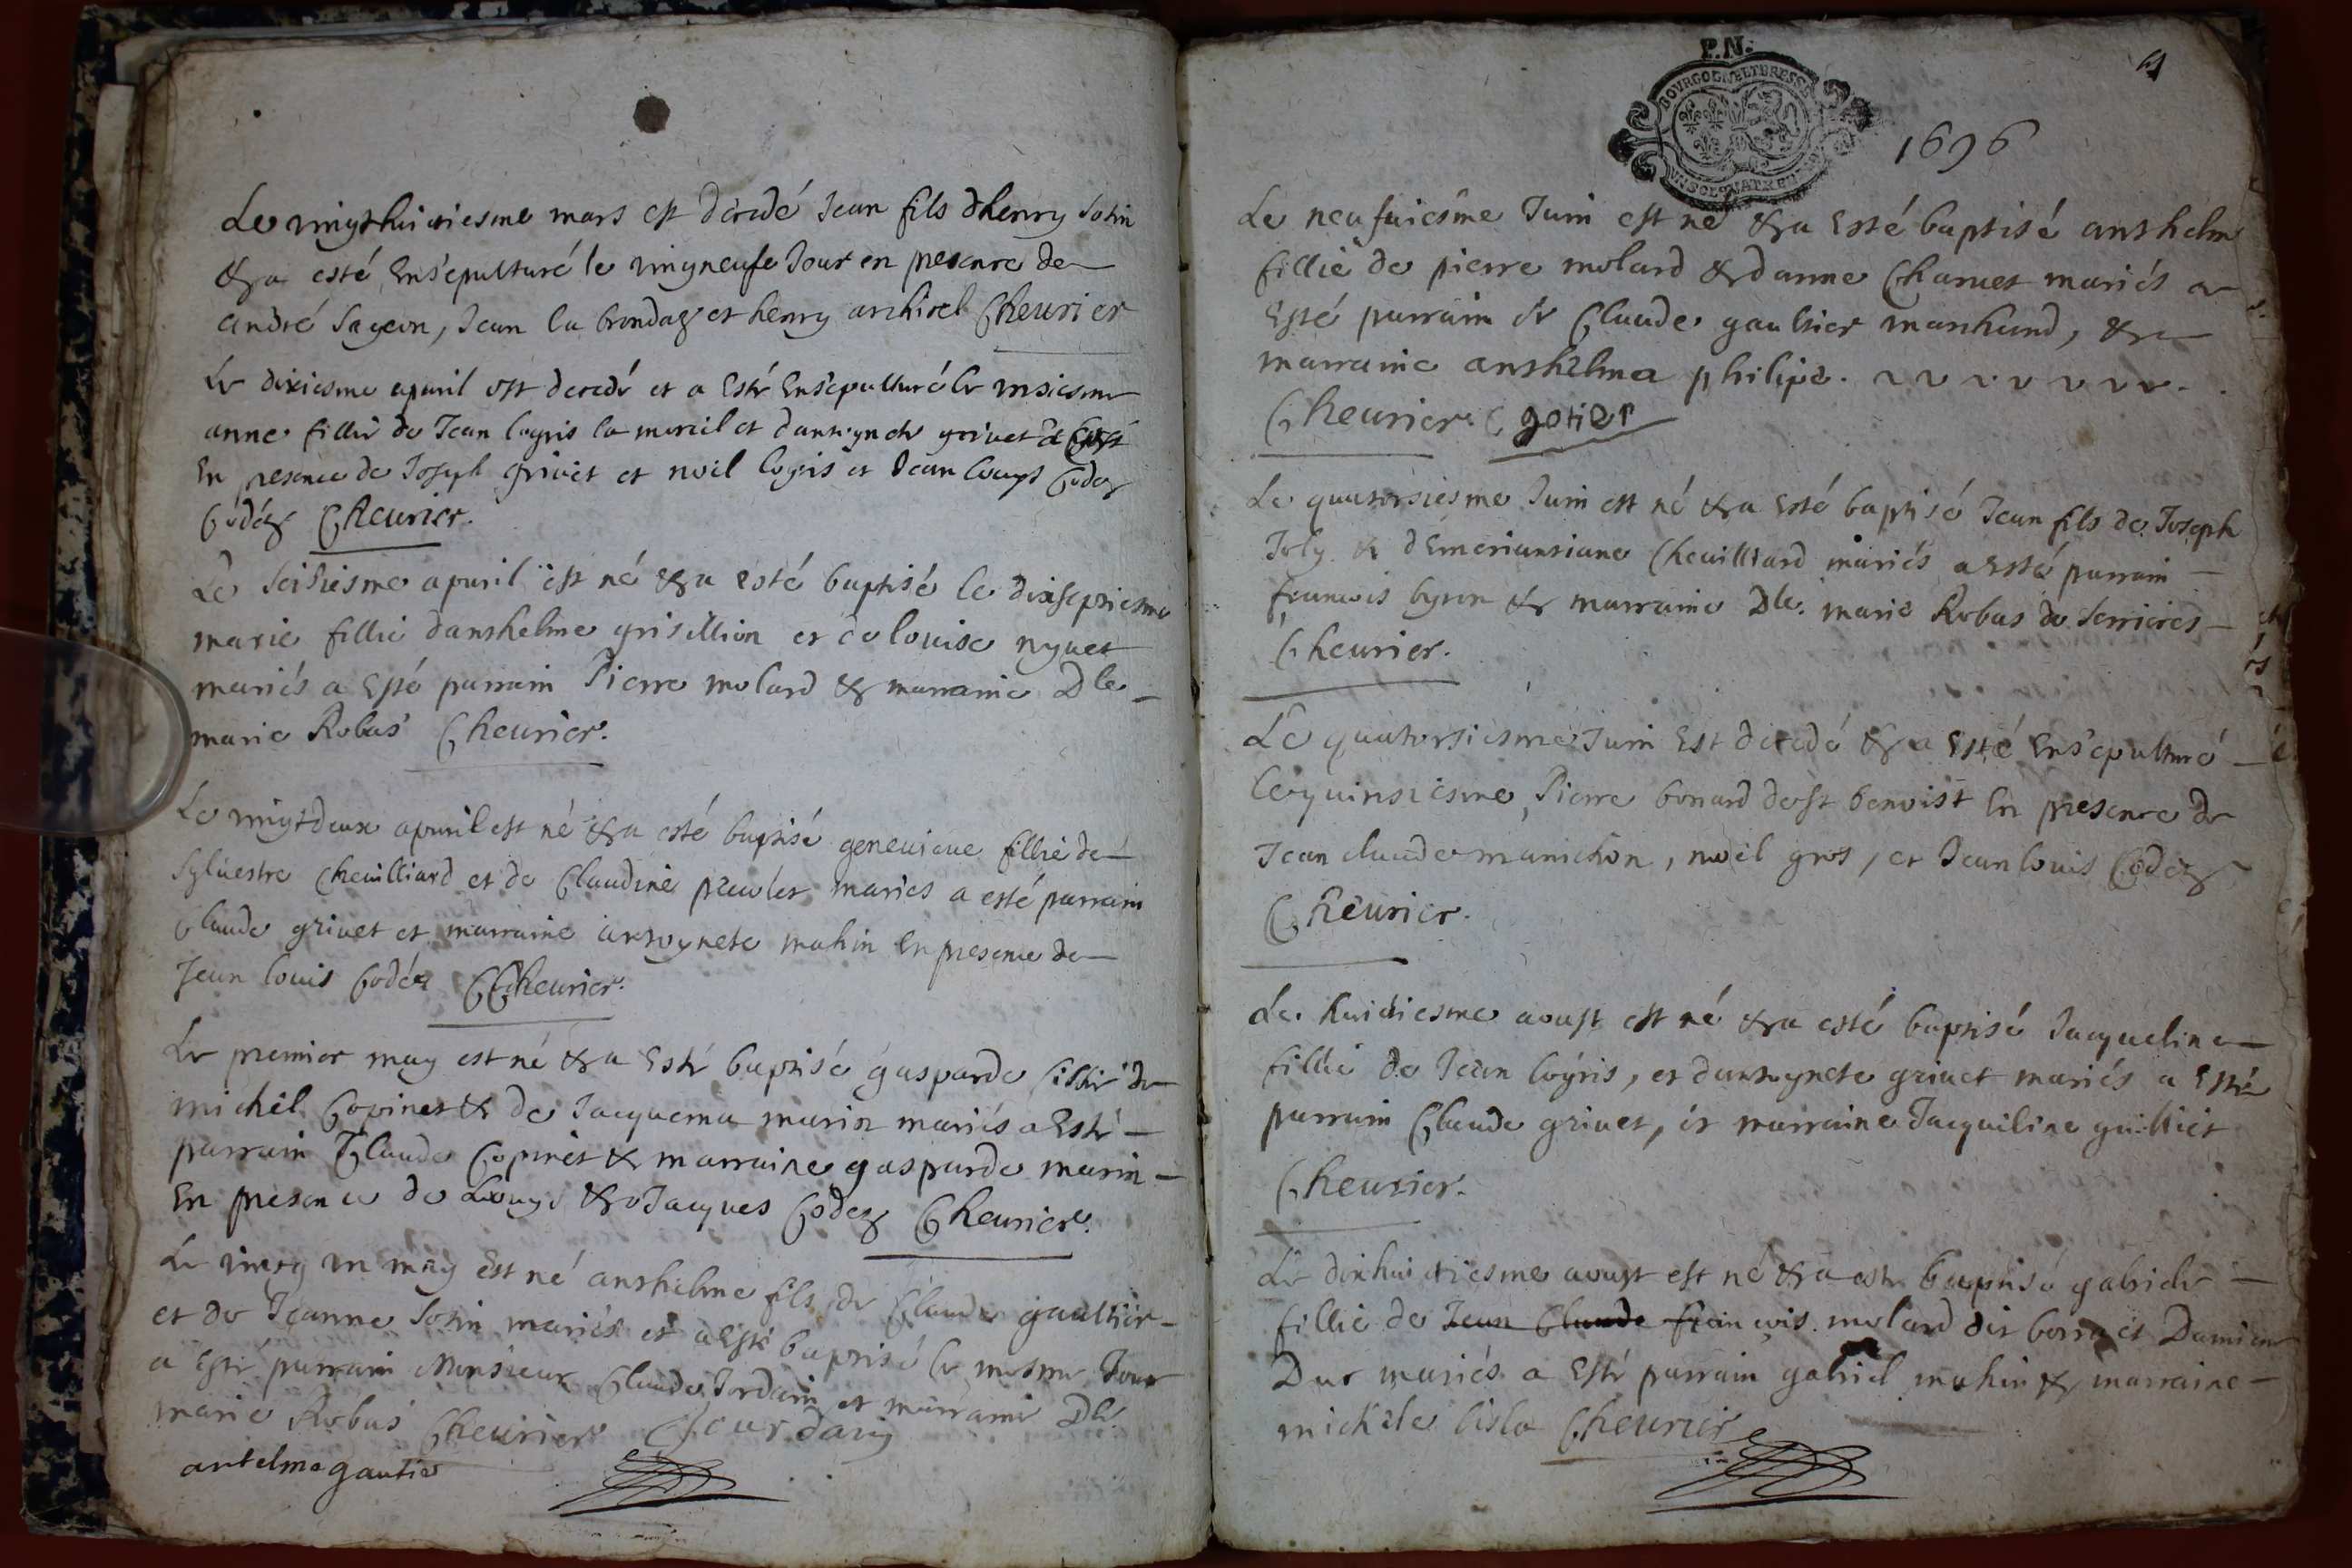 Le vingthuictiesme mars est décédé Jean fils dhenry Sotin
& a esté Ensépulturé le vingneufe Jour en presence de
André Sageon, Jean la brondaz et henry anchisel Cheurier
Le dixiesme apuril est decedé et a Esté Ensépulturé le unsiesme
anne fillie de Jean logris la morail et dantoynete griuet
En presence de Joseph griuet et noel logris et Jean Louys Codez
Codéz Cheurier.
Le seisiesme apuril est né & a esté baptisé le dixseptiesme
marie fillie danthelme grisillion et de louise nyuet
mariés a Esté parrain Pierre molard & marraine Dle
marie Robas Cheurier.
Le vingtdeux apuril est né & a esté baptisé geneuieue fillie de
Syluestre Cheuilliard et de Claudine preuolet mariés a esté parrain
Claude griuet et marraine antoynete mahin En presence de
Jean louis Codéz Cheurier.
Le premier may est né & a Esté baptisé gasparde fillie de
michel Copinet & de Jacquema marin mariés a Esté
parrain Claude Copinet & marraine gasparde marin
En presence de Louys & Jacques Codez Cheurier.
Le vingt un may Est né anthelme fils de Claude gaultier
et de Jeanne Sotin mariés et a Esté baptisé le mesme Jour
a Esté parrain Monsieur Claude Jordain et marraine Dle
marie Robas Cheurier Jourdain
antelme gautier
P.N.
BOVRGOGNE ET BRESSE
4
1696
Le neufuiesme Juin est né & a Esté baptisé anthelm
fillie de pierre molard & danne Charuet mariés a
Esté parrain Sr Claude gaultier marchand, & a
marraine anthelma philipe.
Cheurier C gotier
Le quatorsiesme Juin est né & a Esté baptisé Jean fils de Joseph
Joly & dEmeriantiane Cheuilliard mariés a Esté parrain
francois byron & marraine Dle. marie Robas de Serrieres
Cheurier.
Le quatorsiésme Juin Est décédé & a Esté Ensépulturé
le quinsiesme, Pierre bonard de St benoist En presence de
Jean claude manichon, noel gros, et Jean louis Codez
Cheurier.
Le huictiesme aoust est né & a esté baptisé Jacqueline
fillie de Jean logris, et dantoynete griuet mariés a Esté
parrain Claude griuet, et marraine Jacquiline guilliet
Cheurier.
Le dixhuictiesme aoust est né & a esté baptisé gabriele
fillie de Jean Claude francois molard dit borra et Damiane
Duc mariés a Esté parrain gabriel mahin & marraine
michele lisla Cheurier